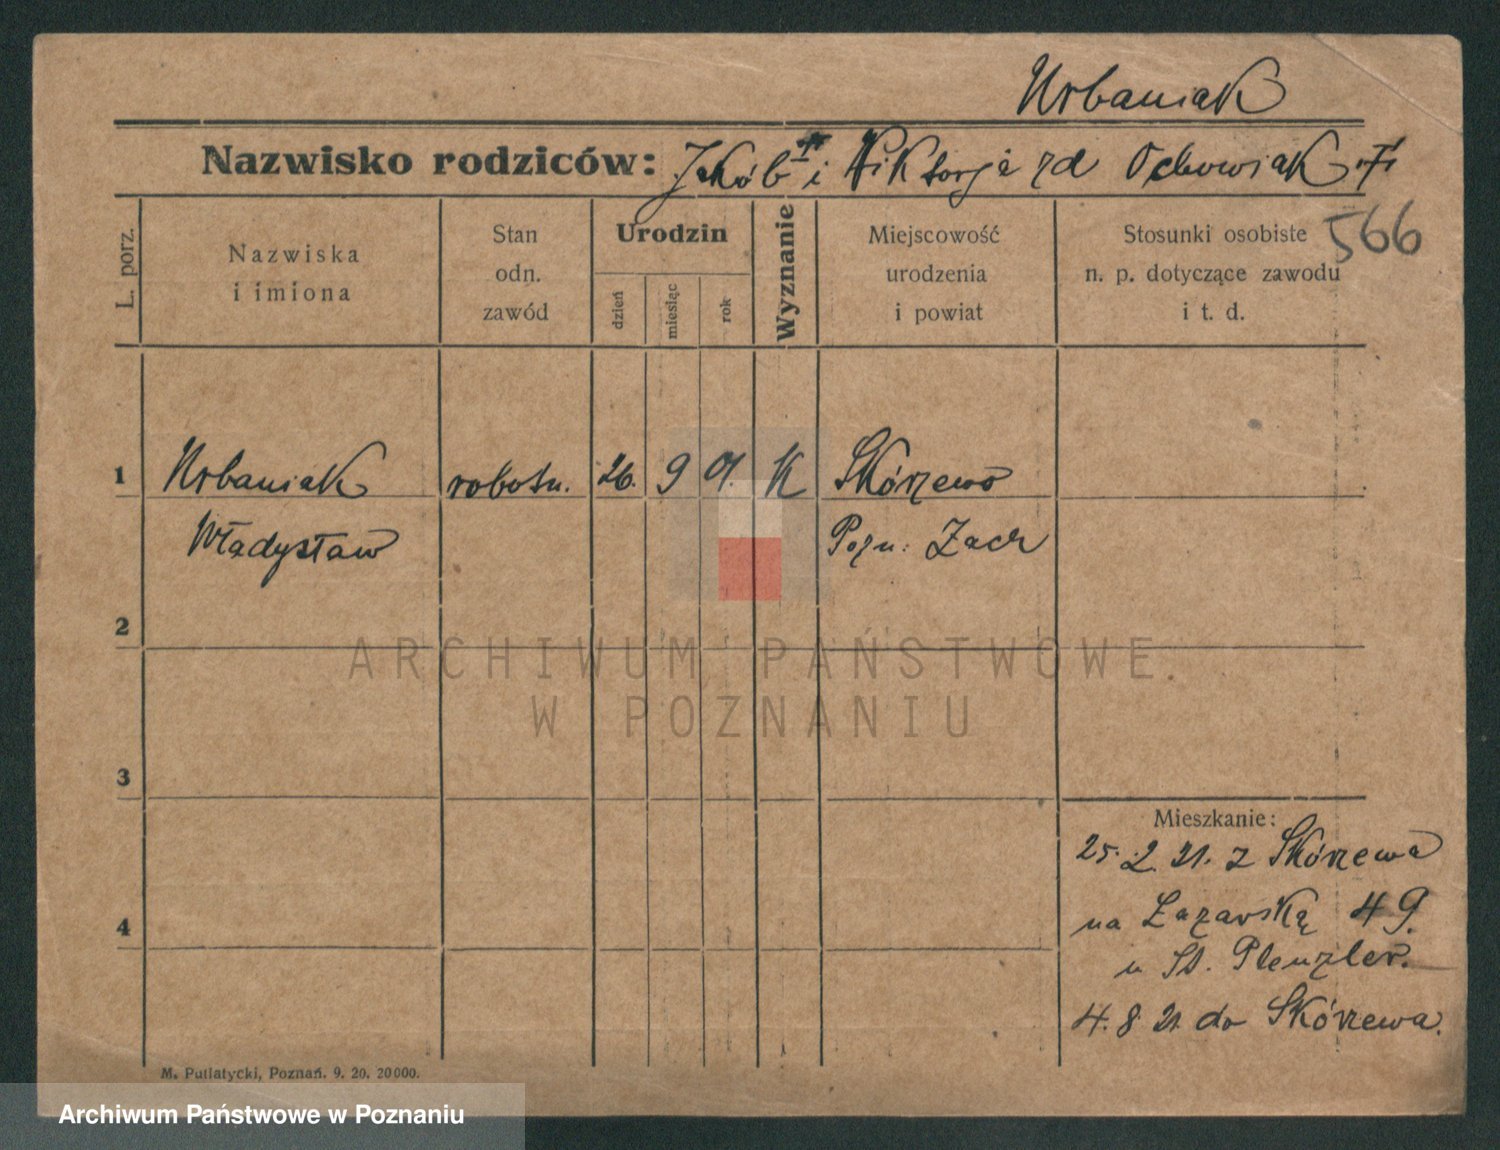 Urbaniak
Nazwisko rodziców: Jakób i Wiktorja zd Ochowiak
566
L. porz.
Nazwiska
i imiona
Stan
odn.
zawód
Urodzin
dzień
miesiąc
rok
Wyznanie
Miejscowość
urodzenia
i powiat
Stosunki osobiste
n. p. dotyczące zawodu
i t. d.
1 Urbaniak robotn. 26. 9 01. K Skórzewo
Władysław Pozn. Zach
2
3
4
Mieszkanie:
25. 2. 21. z Skórzewa
na Łazarską 49.
u St. Plenzler.
4. 8 21. do Skórzewa.
M. Putiatycki, Poznań. 9. 20. 20000.
ARCHIWUM PAŃSTWOWE
W POZNANIU
Archiwum Państwowe w Poznaniu